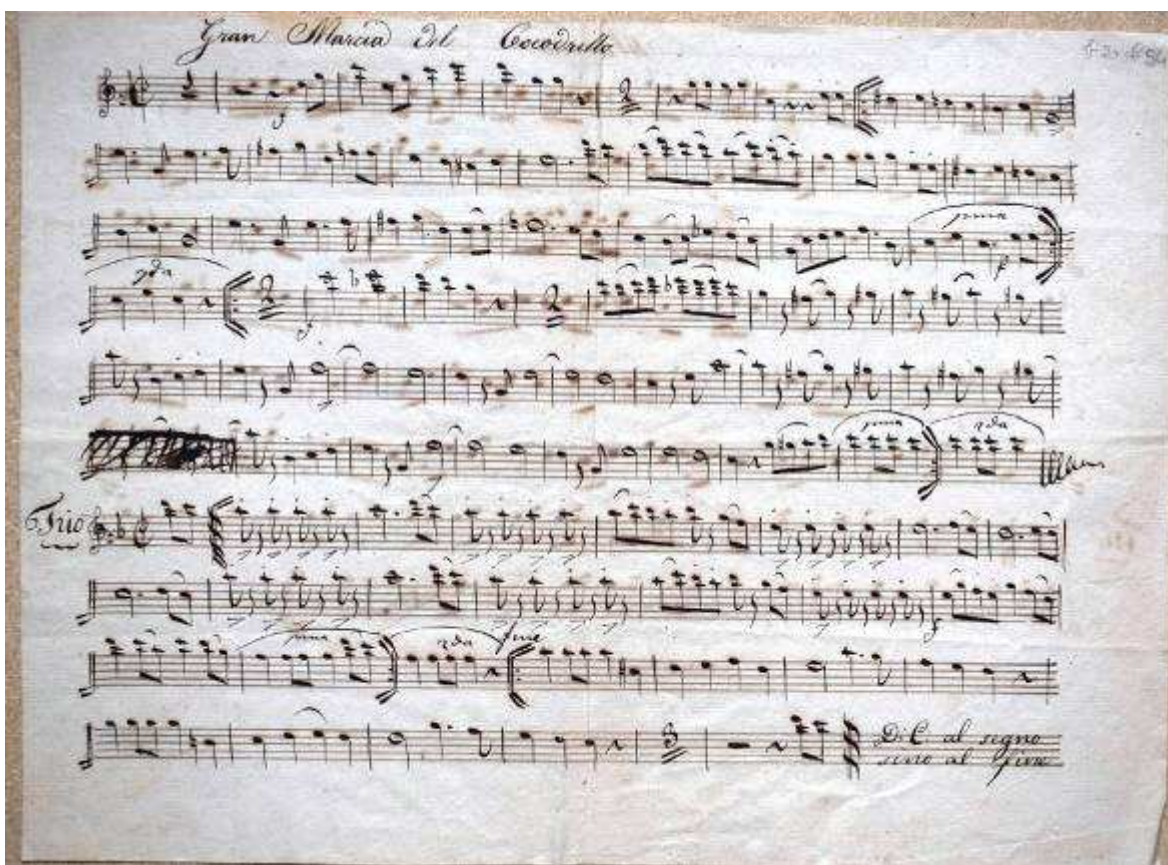 Gran Marcia del Cocodrillo
f
2
pma
f
2da
2
f
2
pma
2da
Trio
f
pma
2da
fine
3
D: C. al segno
sino al fine